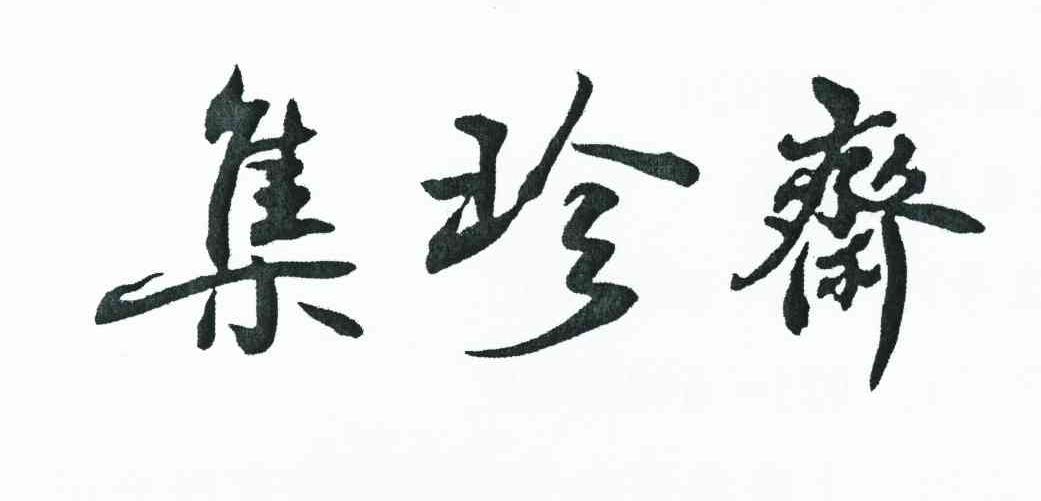 集珍齋